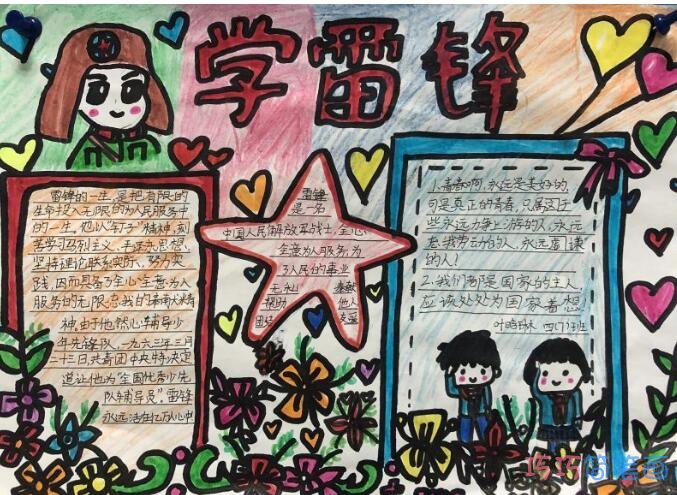 学雷锋
雷锋的一生,是把有限的
生命投入无限的为人民服务中
的一生,他以"钉子"精神,刻
苦学习马列主义、毛泽东思想,
坚持理论联系实际、努力实
践,因而具备了全心全意为人
服务的无限忠我的
神,由于他热心辅导少
年先锋队,一九六三年三月
二十三日共青团中央特决定
追认他为"全国优秀少先
队辅导员",雷锋
永远活在亿万人心中
雷锋
是一名
中国人民解放军战士,全心
全意为人服务,为
了人民的事业
无私 奉献
帮助 他人
团结 友爱
1.青春啊,永远是美好的,
可是真正的青春,只属这
些永远力争上游的人,永远
忘我劳动的人,永远谦
的人!
2.我们都是国家的主人,
应该处处为国家着想
四(7)班
巧巧简笔画